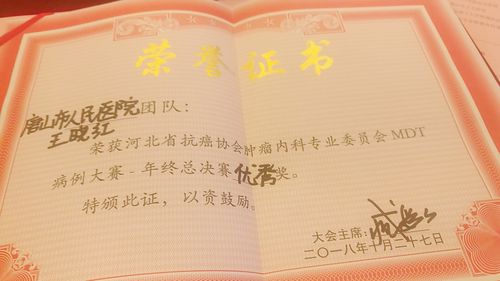 荣誉证书
唐山市人民医院团队：
王晓红
荣获河北省抗癌协会肿瘤内科专业委员会MDT
病例大赛-年终总决赛优秀奖。
特颁此证，以资鼓励。
大会主席：
二〇一八年十月二十七日